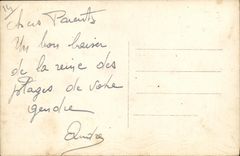 Chers Parents
Un bon baiser
de la reine des
plages de votre
gendre
André